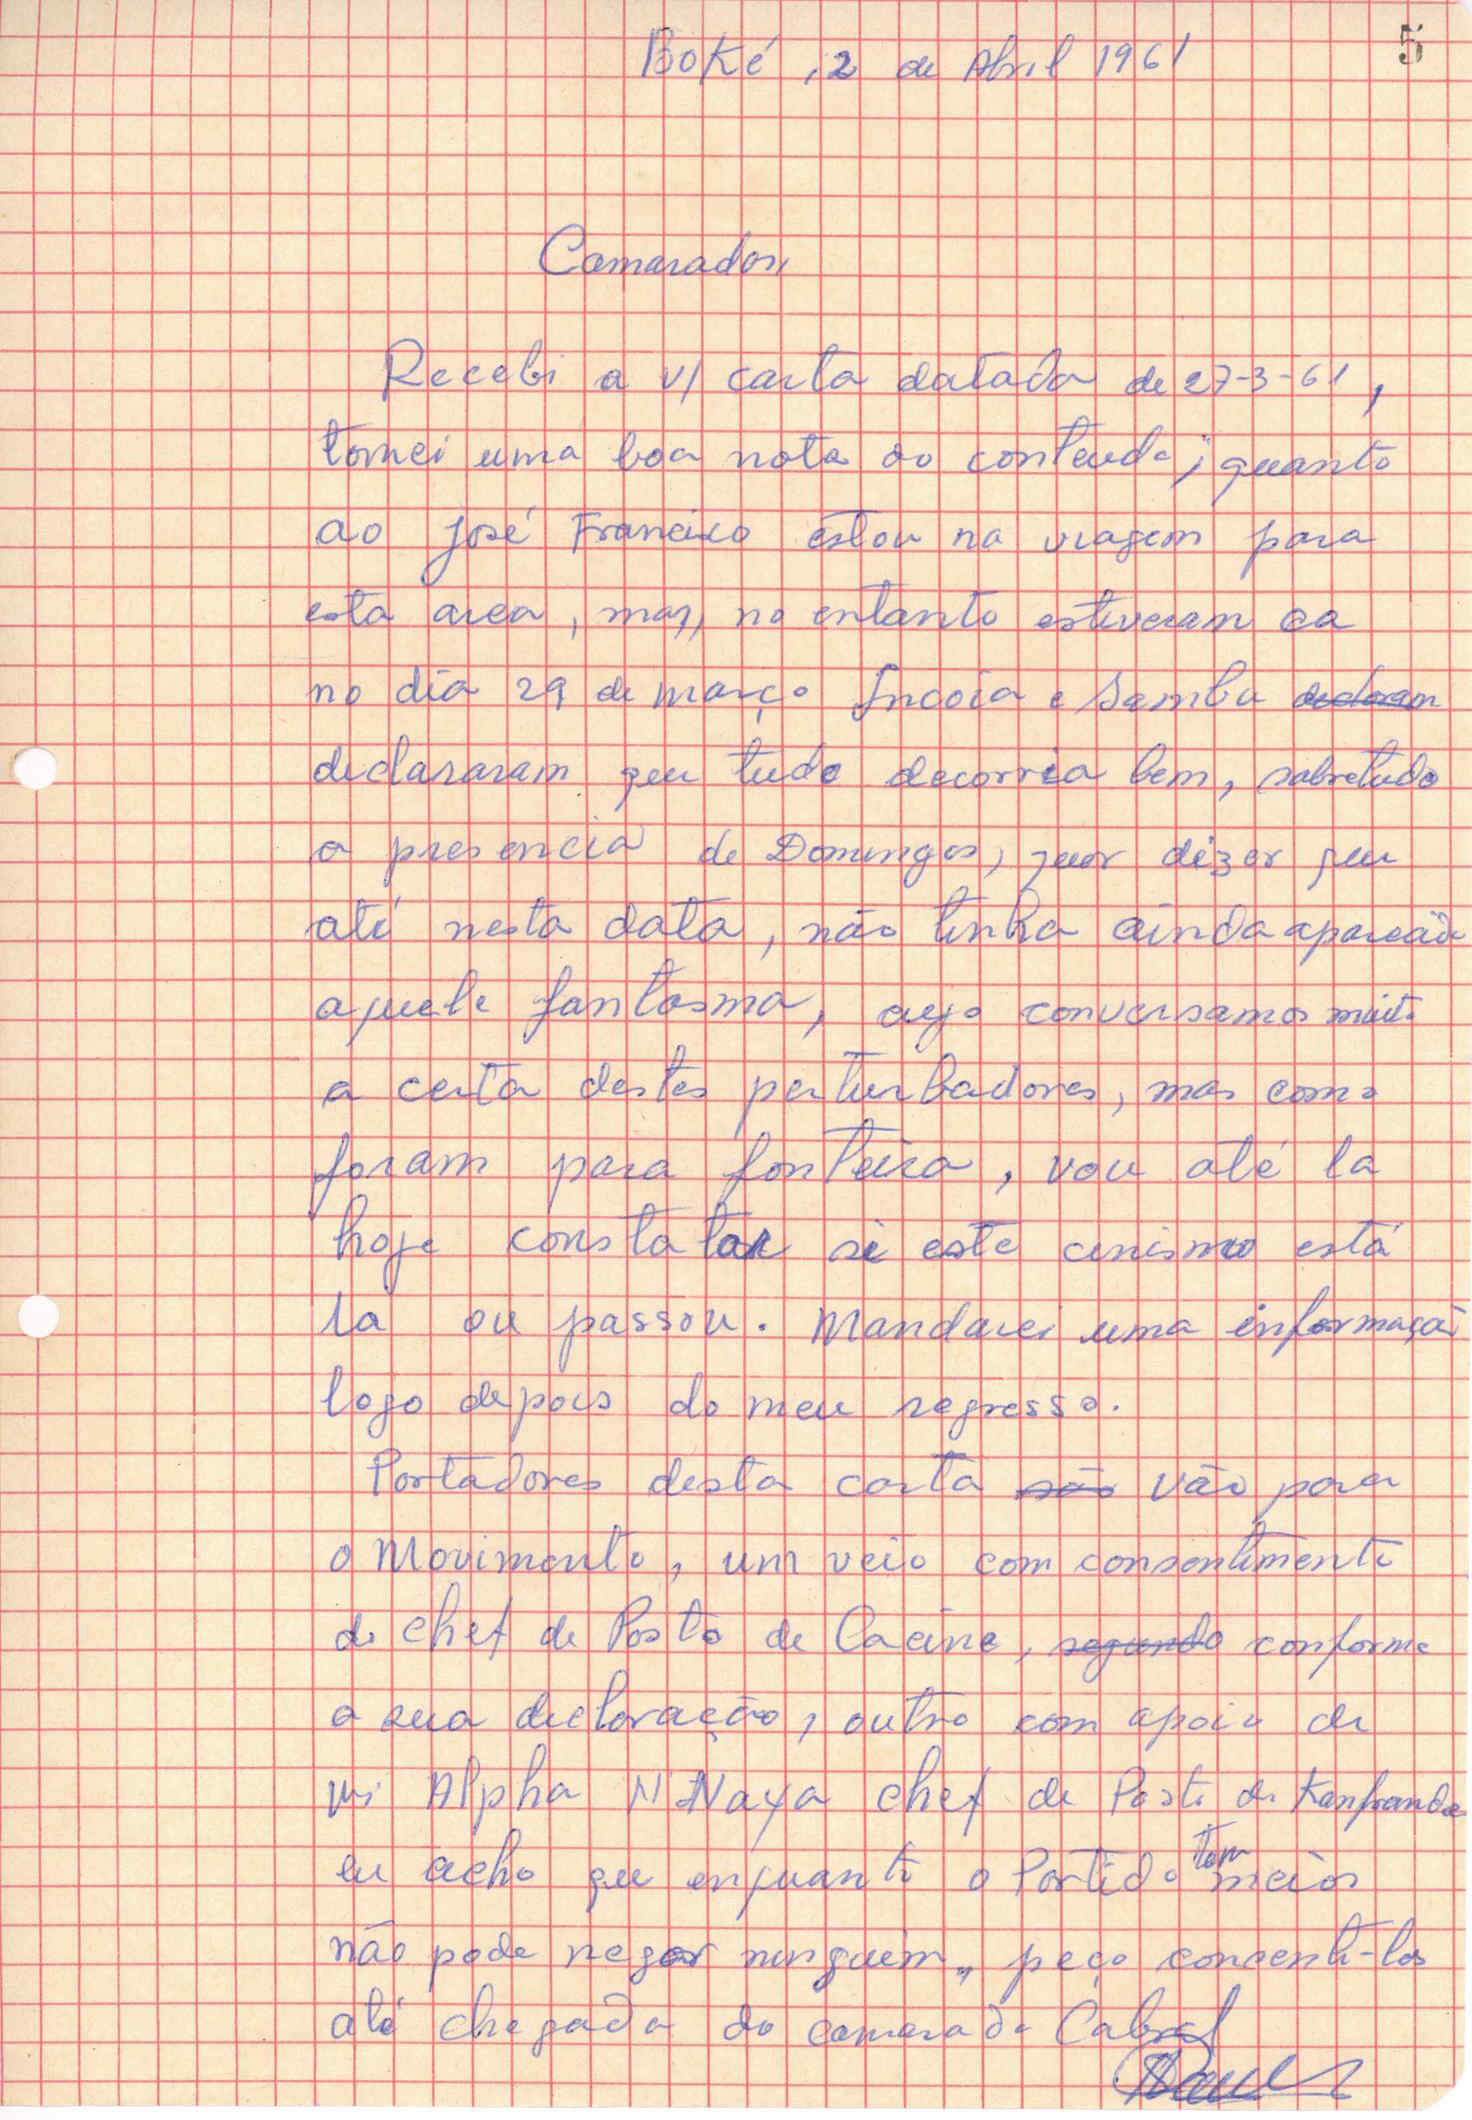 5
Boké, 2 de Abril 1961
Camaradas,
Recebi a v/ carta datada de 27-3-61,
tomei uma boa nota ao conteudo; quanto
ao José Francisco estou na viagem para
esta area, mas, no entanto estiveram ca
no dia 29 de março Incoia e Sambu declaram
declararam que tudo decorria bem, sobretudo
a presencia de Domingos, quer dizer que
até nesta data, não tinha ainda aparecido
aquele fantasma, cujo conversamos muito
a certa destes perturbadores, mas como
foram para fonteira, vou até la
hoje constatar si este cinismo está
la ou passou. Mandarei uma informação
logo depois do meu regresso.
Portadores desta carta são vão para
o Movimento, um veio com consentimento
do chef de Posto de Cacine, segundo conforme
a sua declaração, outro com apoio de
Alpha N'Naya chef de Posto de Kanfrande
eu acho que enquanto o Partido tem meios
não pode negar ninguem, peço consenti-los
até chegada do camarada Cabral